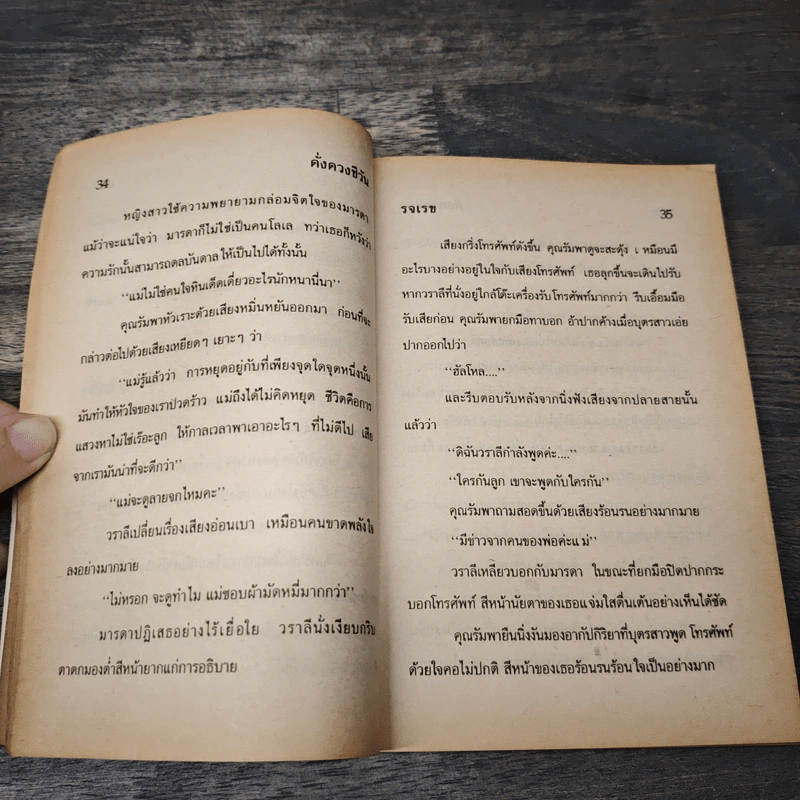 34
ดั่งดวงชีวัน
หญิงสาวใช้ความพยายามกล่อมจิตใจของมารดา
แม้ว่าจะแน่ใจว่า มารดาก็ไม่ใช่เป็นคนโลเล ทว่าเธอก็หวังว่า
ความรักนั้นสามารถดลบันดาลให้เป็นไปได้ทั้งนั้น
“แม่ไม่ใช่คนใจหินเด็ดเดี่ยวอะไรนักหนานี่นา”
คุณรัมพาหัวเราะด้วยเสียงหมิ่นหยันออกมา ก่อนที่จะ
กล่าวต่อไปด้วยเสียงเหยียดๆ เยาะๆ ว่า
“แม่รู้แล้วว่า การหยุดอยู่กับที่เพียงจุดใดจุดหนึ่งนั้น
มันทำให้หัวใจของเราปวดร้าว แม่ถึงได้ไม่คิดหยุด ชีวิตคือการ
แสวงหาไม่ใช่เรอะลูก ให้กาลเวลาพาเอาอะไรๆ ที่ไม่ดีไป เสีย
จากเรามันน่าที่จะดีกว่า”
“แม่จะดูลายจกไหมคะ”
วราลีเปลี่ยนเรื่องเสียงอ่อนเบา เหมือนคนขาดพลังใจ
ลงอย่างมากมาย
“ไม่หรอก จะดูทำไม แม่ชอบผ้ามัดหมี่มากกว่า”
มารดาปฏิเสธอย่างไร้เยื่อใย วราลีนั่งเงียบกริบ
ตาตกมองต่ำสีหน้ายากแก่การอธิบาย
รจเรข
35
เสียงกริ่งโทรศัพท์ดังขึ้น คุณรัมพาดูจะสะดุ้ง เหมือนมี
อะไรบางอย่างอยู่ในใจกับเสียงโทรศัพท์ เธอลุกขึ้นจะเดินไปรับ
หากวราลีที่นั่งอยู่ใกล้โต๊ะเครื่องรับโทรศัพท์มากกว่า รีบเอื้อมมือ
รับเสียก่อน คุณรัมพายกมือทาบอก อ้าปากค้างเมื่อบุตรสาวเอ่ย
ปากออกไปว่า
“ฮัลโหล....”
และรีบตอบรับหลังจากนิ่งฟังเสียงจากปลายสายนั้น
แล้วว่า
“ดิฉันวราลีกำลังพูดค่ะ....”
“ใครกันลูก เขาจะพูดกับใครกัน”
คุณรัมพาถามสอดขึ้นด้วยเสียงร้อนรนอย่างมากมาย
“มีข่าวจากคนของพ่อค่ะแม่”
วราลีเหลียวบอกกับมารดา ในขณะที่ยกมือปิดปากกระ
บอกโทรศัพท์ สีหน้านัยตาของเธอแจ่มใสตื่นเต้นอย่างเห็นได้ชัด
คุณรัมพายืนนิ่งงันมองอากัปกิริยาที่บุตรสาวพูด โทรศัพท์
ด้วยใจคอไม่ปกติ สีหน้าของเธอร้อนรนร้อนใจเป็นอย่างมาก